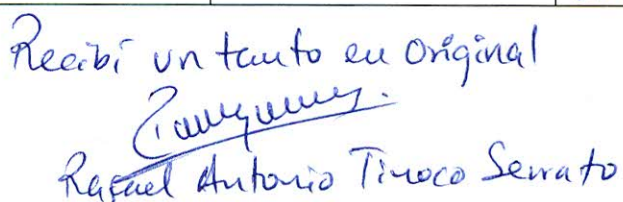 Recibí un tanto en original
Rafael Antonio Tinoco Serrato